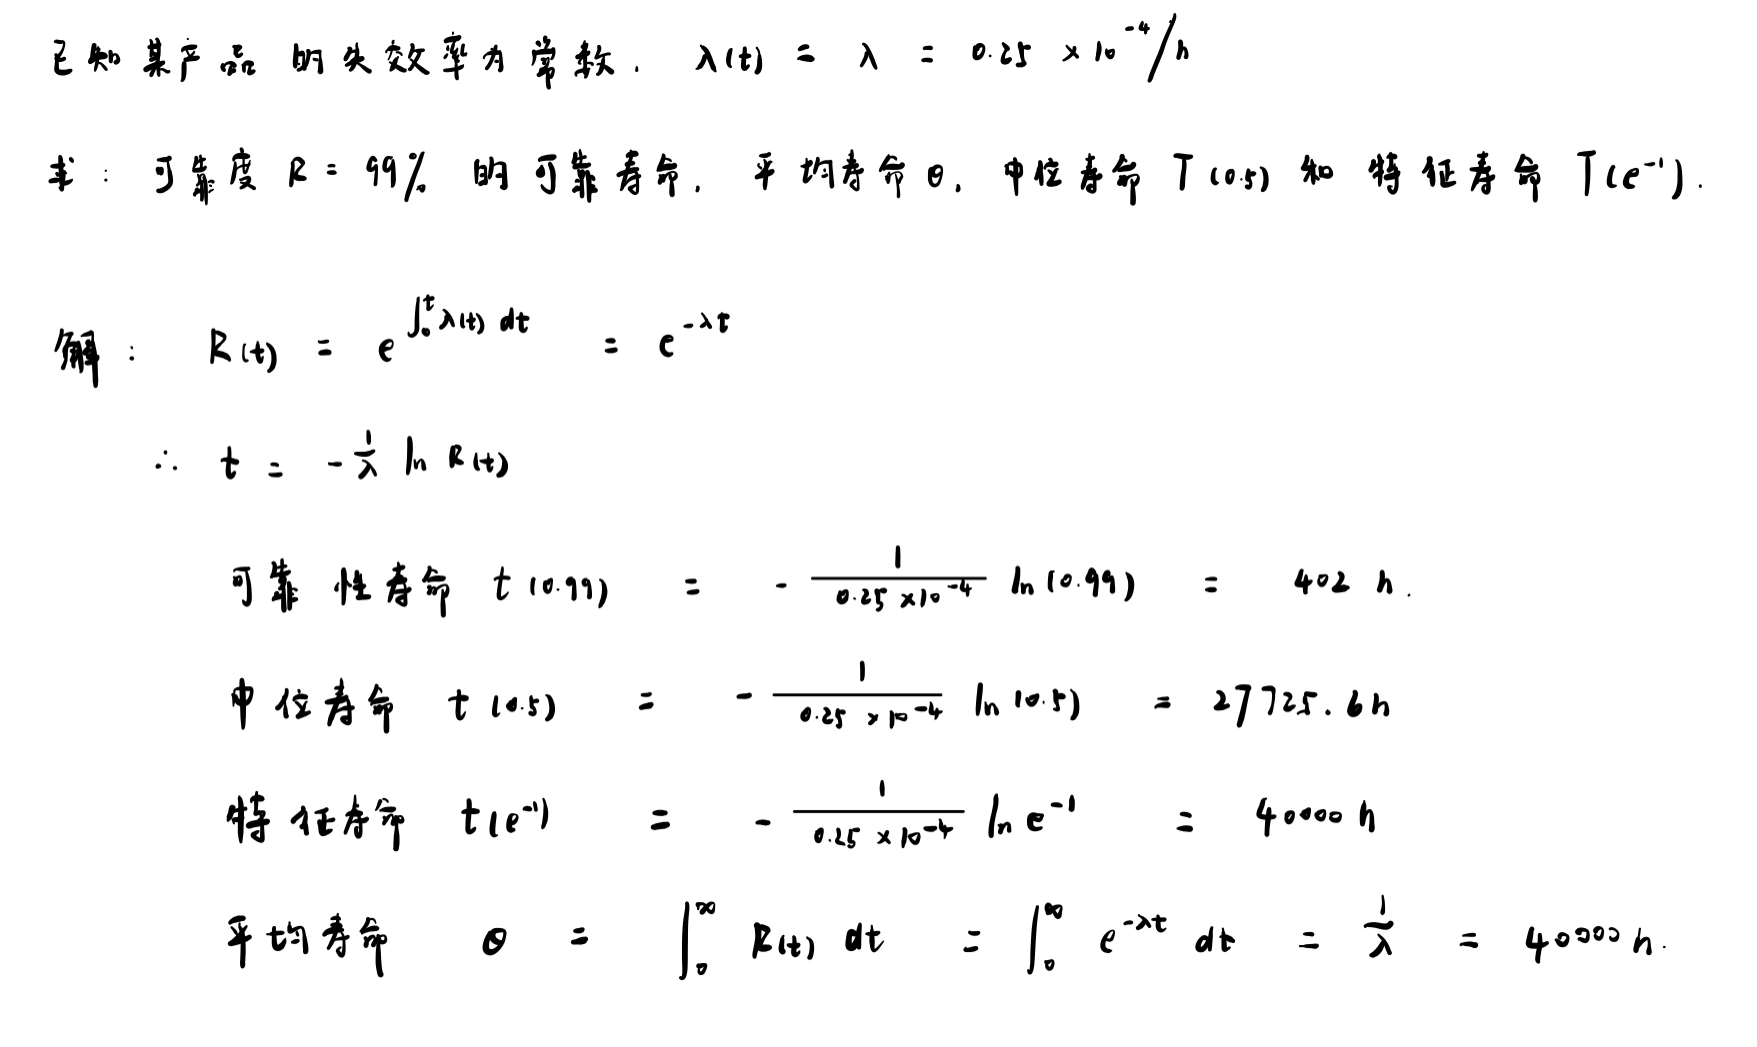 已知某产品的失效率为常数. λ(t) = λ = 0.25 × 10⁻⁴/h
求: 可靠度 R = 99% 的可靠寿命, 平均寿命 θ, 中位寿命 T(0.5) 和 特征寿命 T(e⁻¹).
解: R(t) = e^{∫₀ᵗ λ(t) dt} = e^{-λt}
∴ t = -1/λ ln R(t)
可靠性寿命 t(0.99) = - 1/(0.25 × 10⁻⁴) ln(0.99) = 402 h.
中位寿命 t(0.5) = - 1/(0.25 × 10⁻⁴) ln(0.5) = 27725.6h
特征寿命 t(e⁻¹) = - 1/(0.25 × 10⁻⁴) ln e⁻¹ = 40000 h
平均寿命 θ = ∫₀^∞ R(t) dt = ∫₀^∞ e^{-λt} dt = 1/λ = 40000 h.